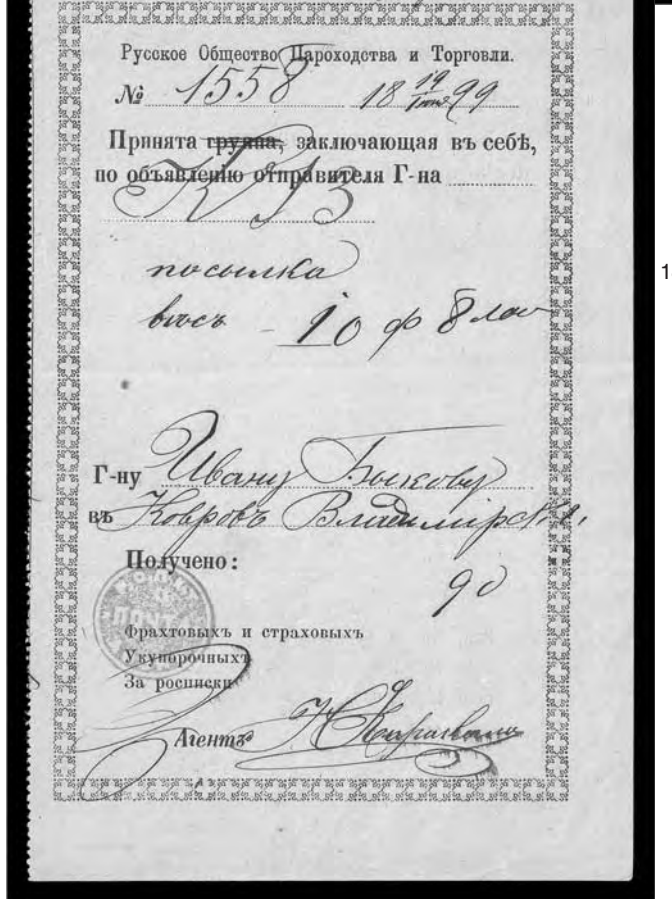 Русское Общество Пароходства и Торговли.
№ 1558 18 19/Іюня 99
Принята группа, заключающая въ себѣ,
по объявленію отправителя Г-на
посылка
вѣсъ - 10 ф 8 ло
1
Г-ну Ивану Быкову
въ Ковровъ Владимірск. г.
Получено:
90
Фрахтовыхъ и страховыхъ
Укупорочныхъ
За росписки
Агентъ